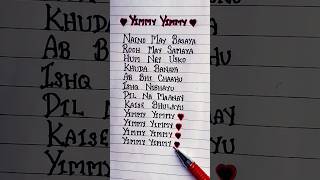 Yimmy Yimmy
Naino May Basaya
Rooh May Samaya
Hum Ney Usko
Khuda Banaya
Ab Bhi Chaahu
Ishq Nibhayu
Dil Na Maanay
Kaise Bhulayu
Yimmy Yimmy
Yimmy Yimmy
Yimmy Yimmy
Yimmy Yimmy